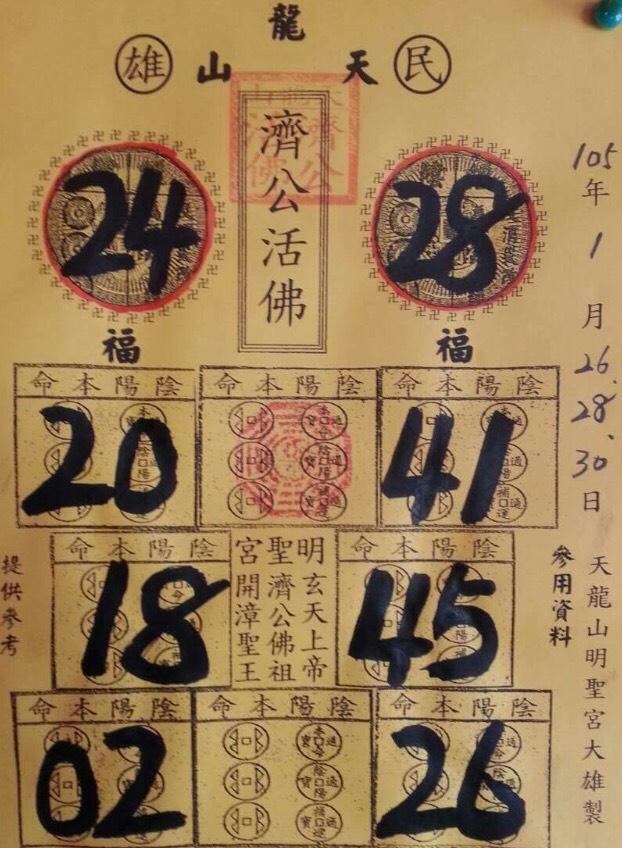 龍
雄 山 天 民
濟公活佛
24
28
福 福
105年1月26.28.30日
命本陽陰
命本陽陰
命本陽陰
20
41
命本陽陰
命本陽陰
18
45
明玄天上帝
聖濟公佛祖
宮開漳聖王
命本陽陰
命本陽陰
命本陽陰
02
26
參用資料
天龍山明聖宮大雄製
提供參考